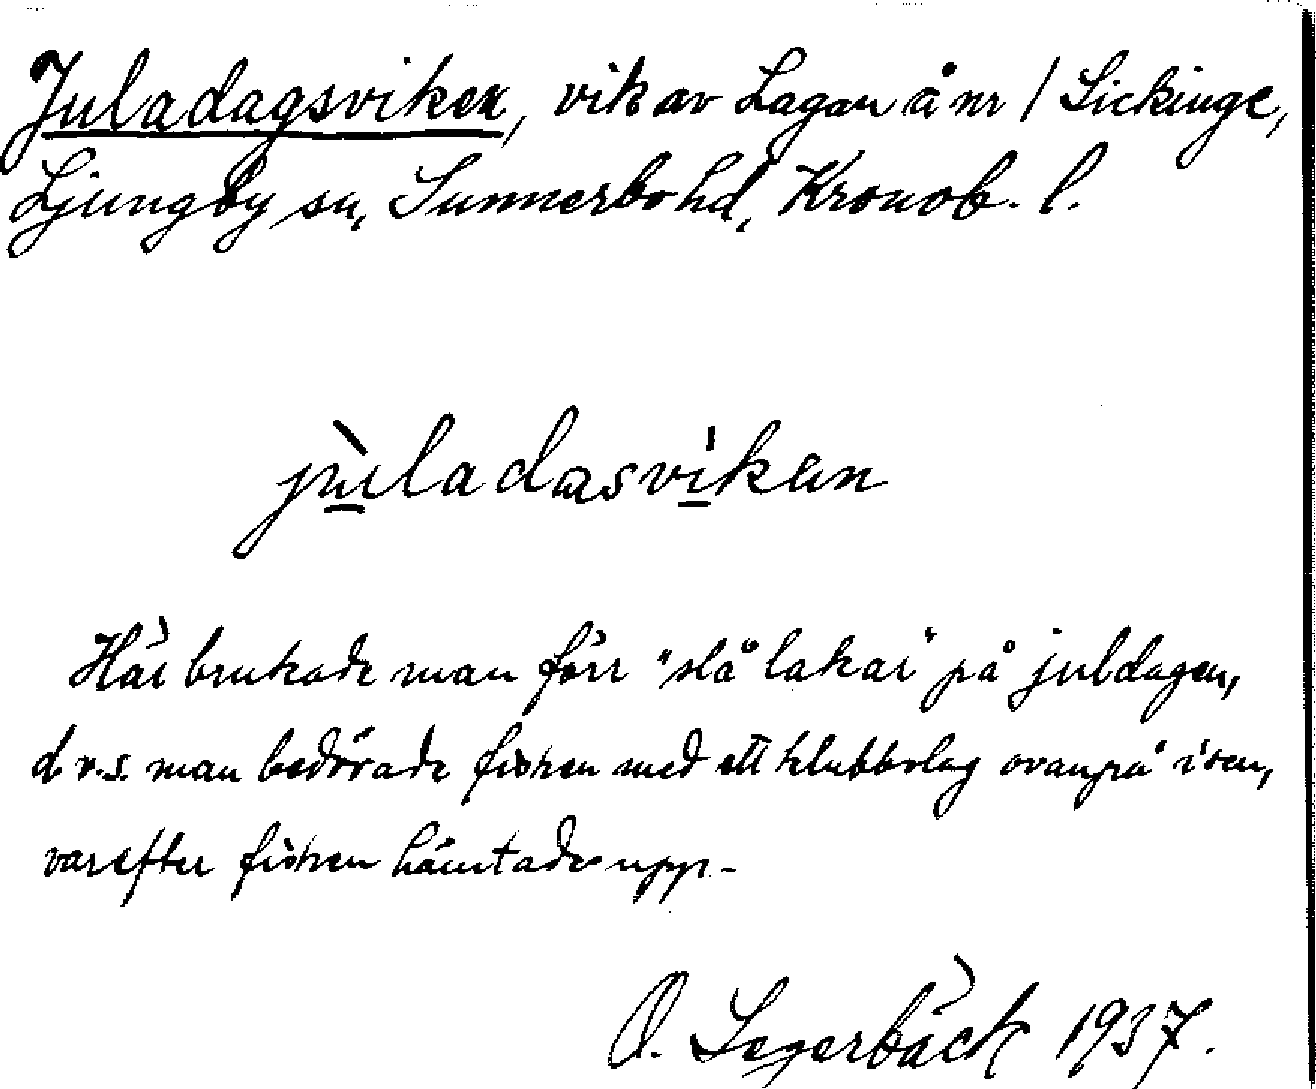 Juladagsviken, vik av Lagan å nr 1 Sickinge,
Ljungby sn, Sunnerbo hd, Kronob. l.
jùladasvíkan
Här brukade man förr "slå lakar" på juldagen,
d.v.s. man bedövade fisken med ett klubbslag ovanpå isen,
varefter fisken hämtades upp.-
O. Segerbäck 1937.